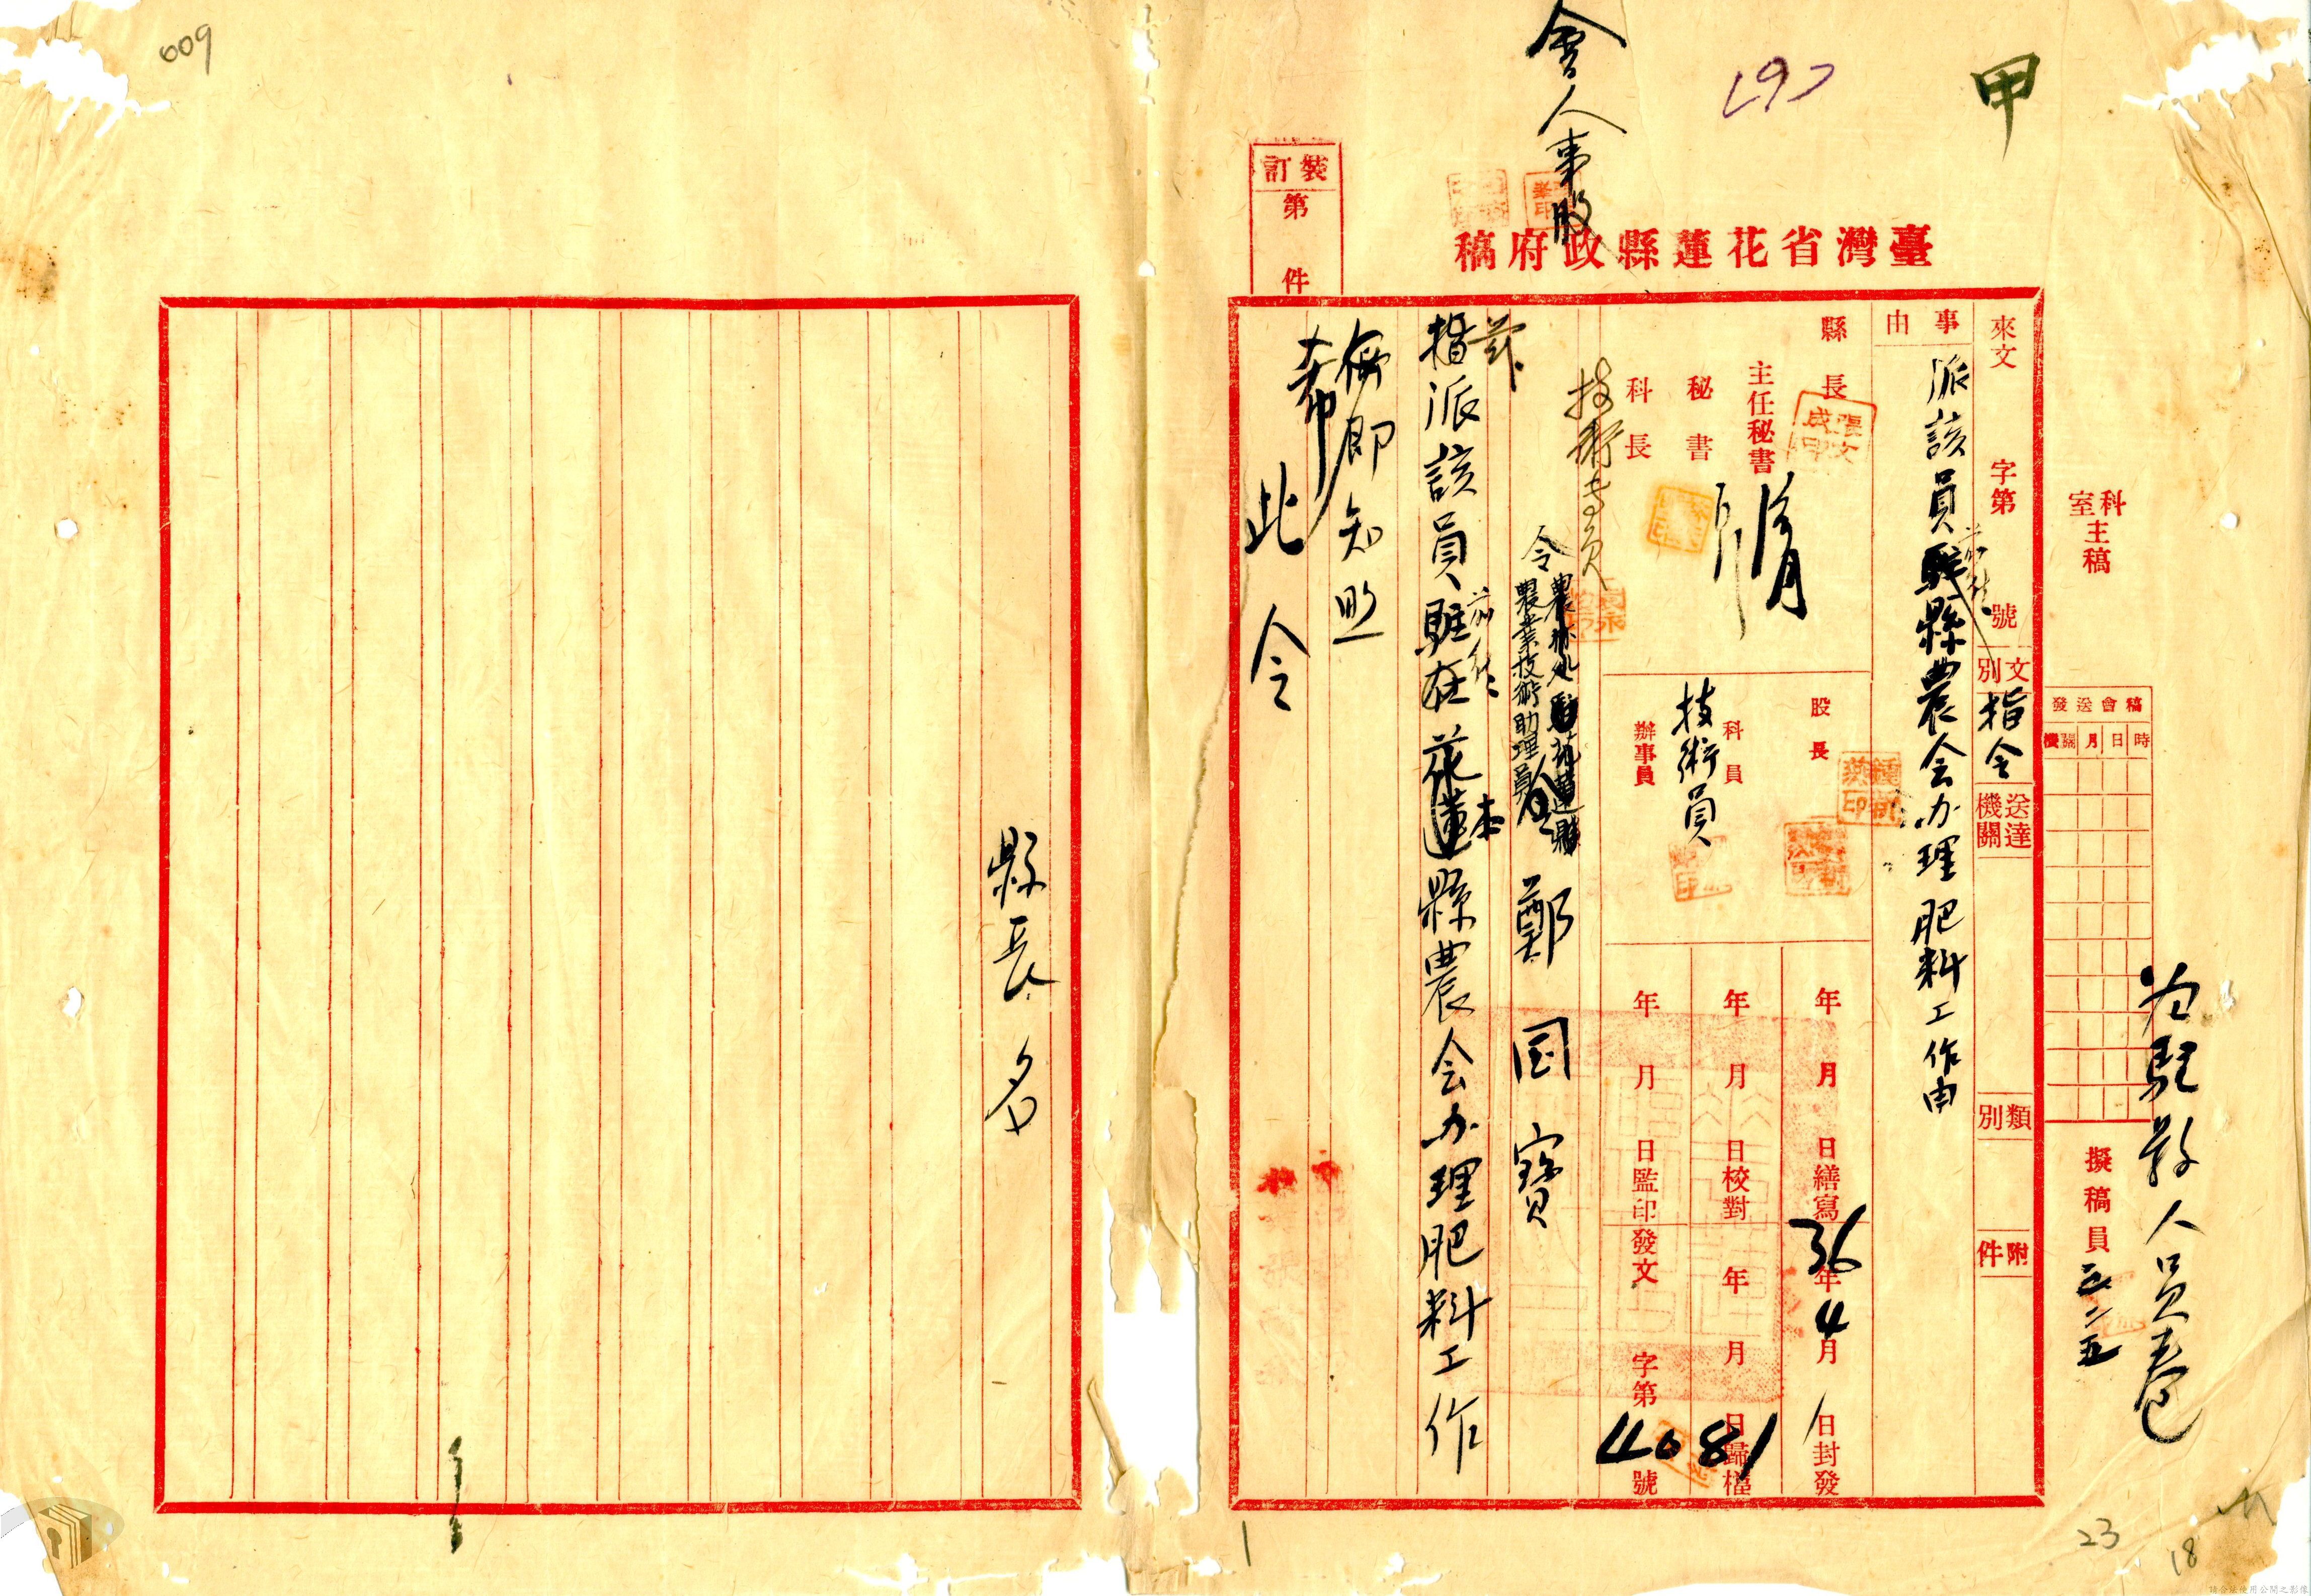 009
甲
197
會人事股
臺灣省花蓮縣政府稿
裝訂第 件
科室主稿
擬稿員
為駐縣人員卷
稿會送發
時日月關機
來文 字第 號
文別 指令
送達機關
類別
附件
事由 派該員前往縣農会办理肥料工作由
縣長
主任秘書
秘書
科長
技術專員
股長
科員
技術員
辦事員
年月日繕寫
年月日校對
年月日監印
36年4月1日封發
年月日歸檔
發文 字第4081號
令農業技術助理員 鄭国寶
茲
指派該員前往本縣農会办理肥料工作
希即知照
此令
縣長 名
1
23
18